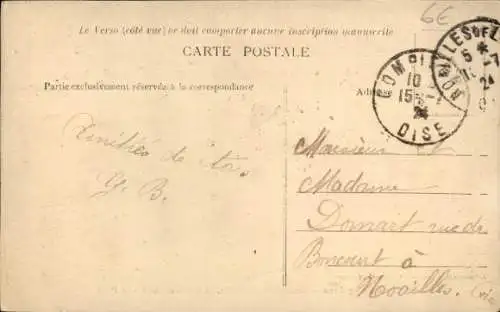 6€
Le Verso (côté vue) ne doit comporter aucune inscription manuscrite
CARTE POSTALE
Partie exclusivement réservée à la correspondance
Adresse
COMPIÈGNE
10
15
24
OISE
5
24
Amitiés de
G. B.
Monsieur et
Madame
Domart rue de
Boncourt à
Noailles